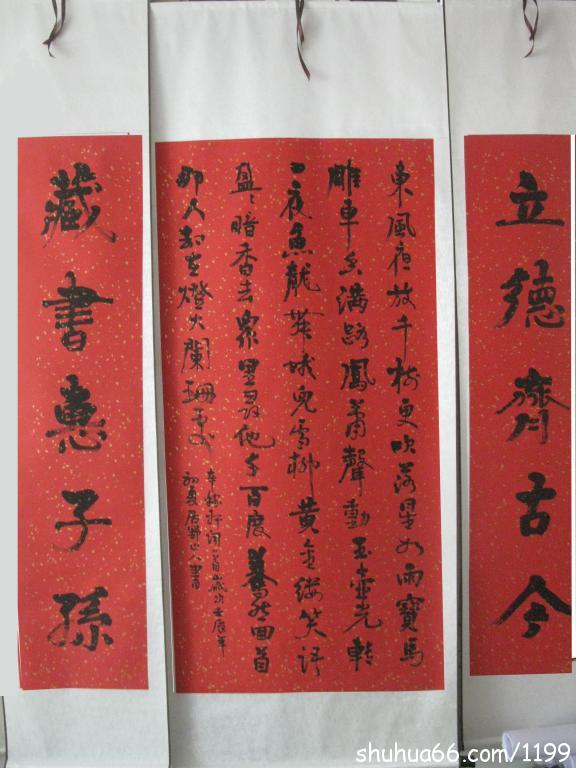 立德齊古今
東風夜放千樹更吹落星如雨寶馬
雕車香滿路鳳簫聲動玉壺光轉
一夜魚龍舞蛾兒雪柳黃金縷笑語
盈〻暗香去眾里尋他千百度驀然回首
那人却在燈火闌珊處
辛稼軒詞一首歲次壬辰年
初夏居山人書
藏書惠子孫
shuhua66.com/1199